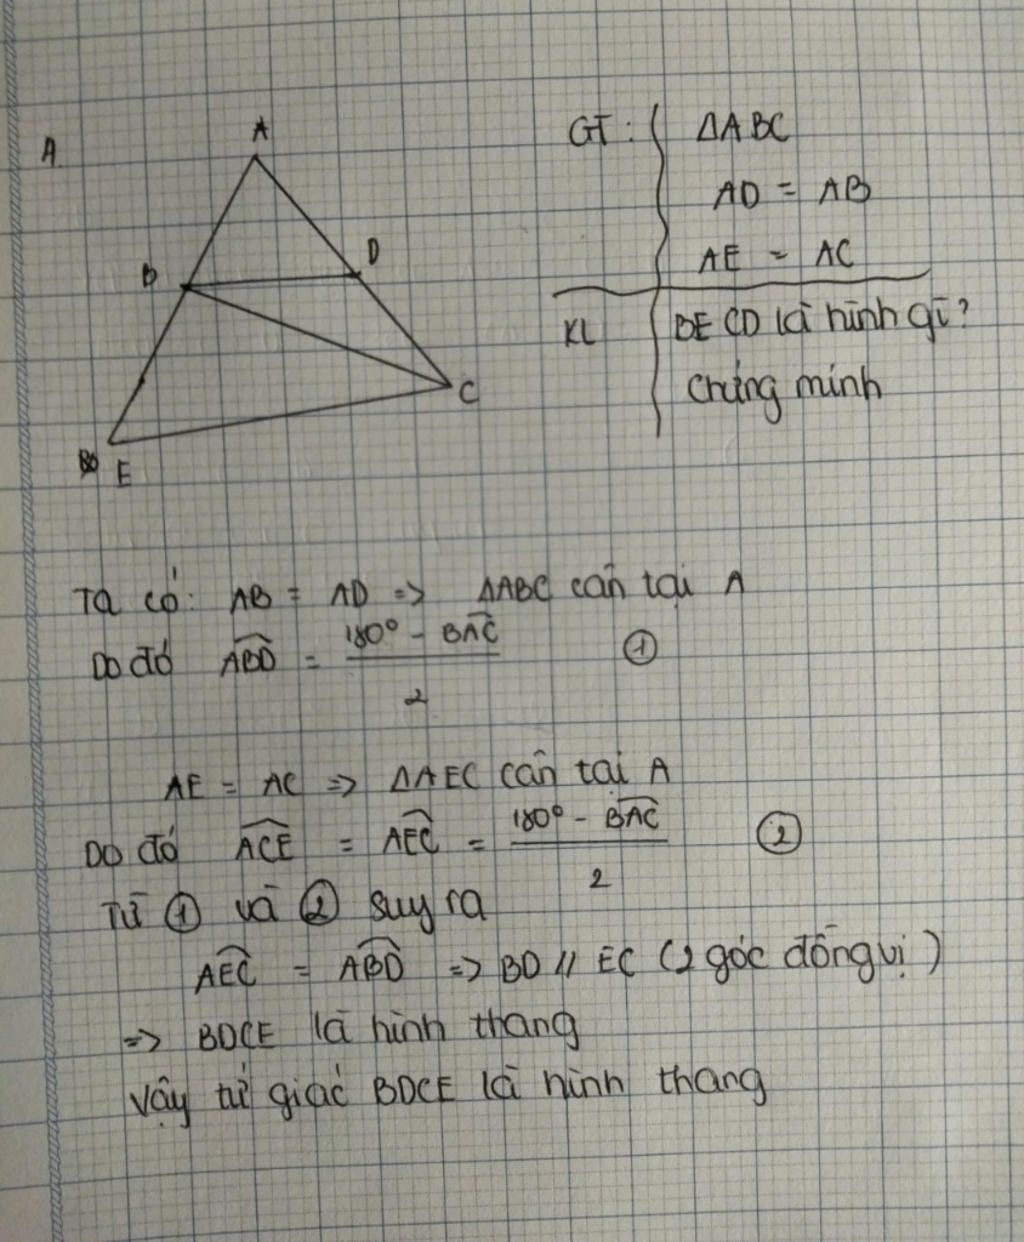 A
A
D
B
C
E
GT: ΔABC
AD = AB
AE = AC
KL BECD là hình gì?
Chứng minh
Ta có: AB = AD => ΔABC cân tại A
Do đó \widehat{ABD} = \frac{180° - \widehat{BAC}}{2} ①
AE = AC => ΔAEC cân tại A
Do đó \widehat{ACE} = \widehat{AEC} = \frac{180° - \widehat{BAC}}{2} ②
Từ ① và ② suy ra
\widehat{AEC} = \widehat{ABD} => BD // EC (2 góc đồng vị)
=> BDCE là hình thang
Vậy tứ giác BDCE là hình thang